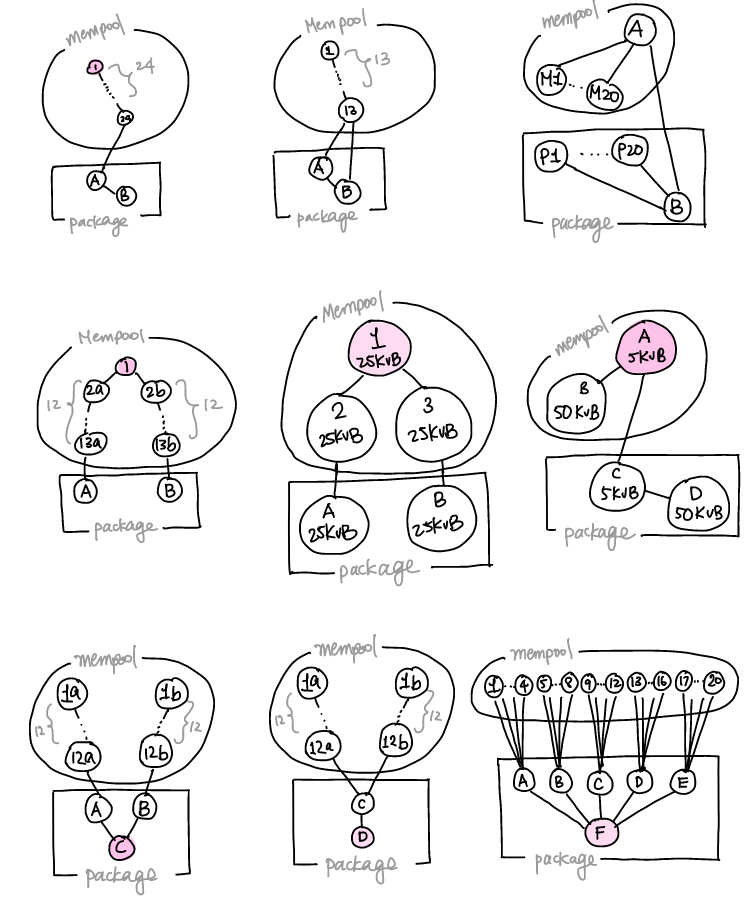 mempool
1
24
24
A
B
package
Mempool
1
13
13
A
B
package
mempool
A
M1
M20
P1
P20
B
package
Mempool
1
2a
2b
12
12
13a
13b
A
B
package
Mempool
1
25KvB
2
25KvB
3
25KvB
A
25KvB
B
25KvB
package
mempool
A
5KvB
B
50KvB
C
5KvB
D
50KvB
package
mempool
1a
1b
12
12
12a
12b
A
B
C
package
mempool
1a
1b
12
12
12a
12b
C
D
package
mempool
1 4 5 8 9 12 13 16 17 20
A B C D E
F
package